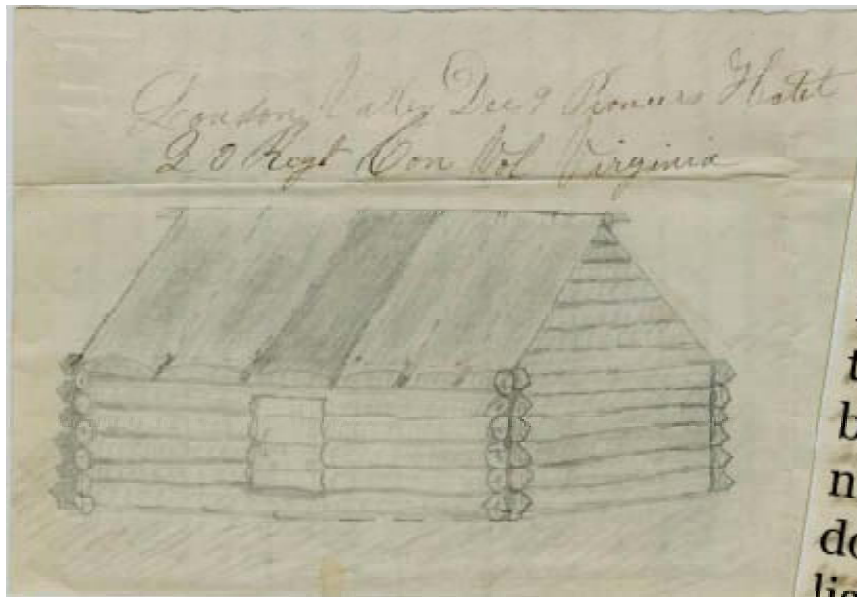 London Valley Dec 9 Pioneers Hotel
20 Regt Con Vol Virginia
t
b
n
do